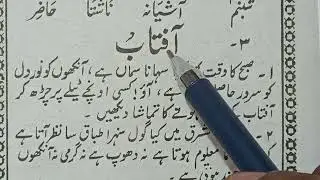 شبنم آشیانہ ناشتا حاضر
۳- آفتاب
۱- صبح کا وقت سہانا سماں ہے، آنکھوں کو نور دل
کو سرور حاصل ہے، آؤ! کسی اونچے ٹیلے پر چڑھ کر
آفتاب کا تماشا دیکھیں۔
۲- مشرق میں کیا گول سنہرا طباق سا نظر آتا ہے
معلوم ہوتا ہے نہ دھوپ ہے نہ گرمی نہ آنکھوں